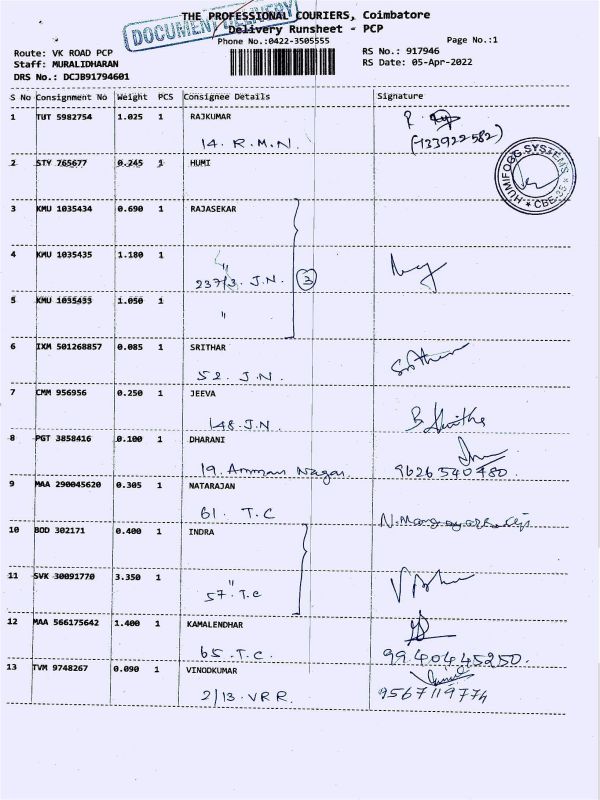 DOCUMENT DELIVERY
THE PROFESSIONAL COURIERS, Coimbatore
Delivery Runsheet - PCP
Phone No.:0422-3505555
Page No.:1
Route: VK ROAD PCP
RS No.: 917946
Staff: MURALIDHARAN
RS Date: 05-Apr-2022
DRS No.: DCJB91794601
S No Consignment No Weight PCS Consignee Details Signature
1 TUT 5982754 1.025 1 RAJKUMAR
14. R.M.N.
2 STY 765677 0.245 1 HUMI
HUMIFOGG SYSTEMS * CBE-35 *
3 KMU 1035434 0.690 1 RAJASEKAR
4 KMU 1035435 1.180 1 "
237/3. J.N. 3
5 KMU 1035435 1.050 1 "
6 IXM 501268857 0.085 1 SRITHAR
52. J.N.
7 CMM 956956 0.250 1 JEEVA
148. J.N.
8 PGT 3858416 0.100 1 DHARANI
19. Amman Nagar. 9626540480
9 MAA 290045620 0.305 1 NATARAJAN
61. T.C
10 BOD 302171 0.400 1 INDRA
11 SVK 30091770 3.350 1 "
57. T.C
12 MAA 566175642 1.400 1 KAMALENDHAR
65. T.C. 9940445250.
13 TVM 9748267 0.090 1 VINODKUMAR
2/13. V.R.R. 9567119774